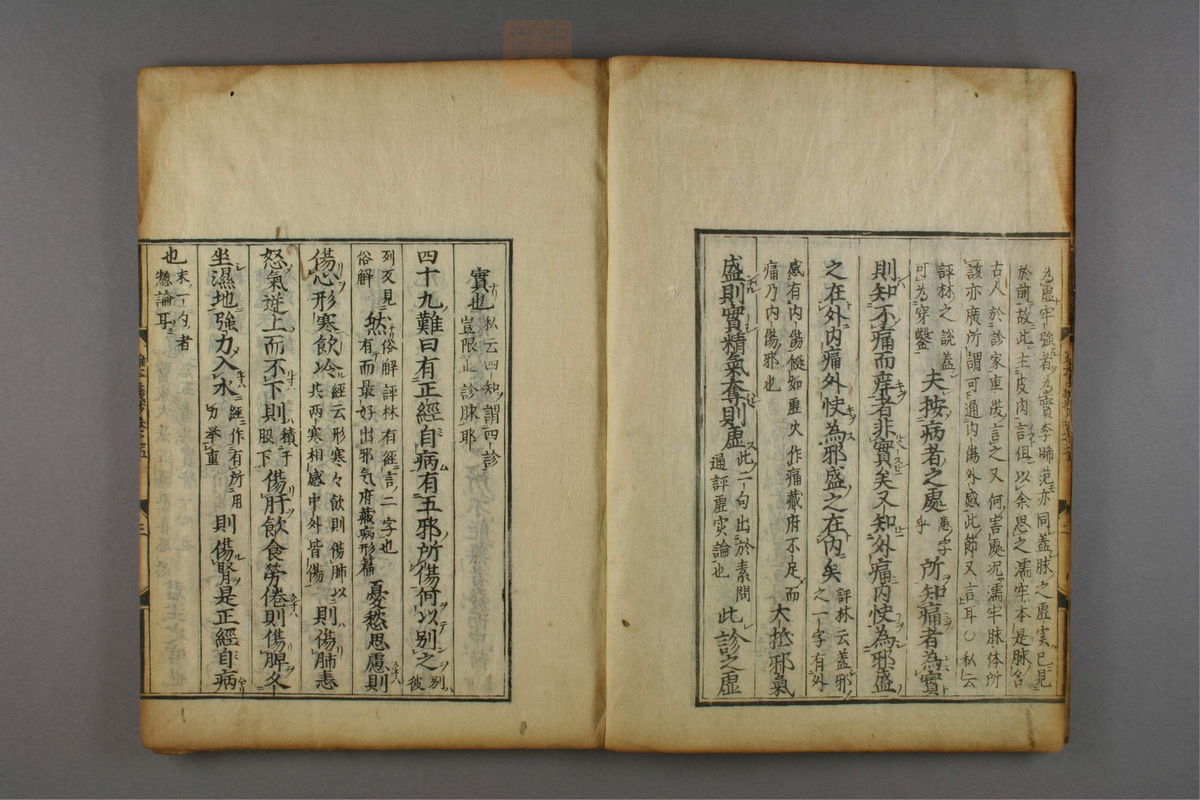 為虛牢強者為實李晞范亦同蓋脉之虛実已見
於前故此主皮肉言但以余思之濡牢本是脉名
古人於診家重复言之又何害處况濡牢脉体所
該亦廣所謂可通内傷外感此節又言耳○私云
評林之説蓋可為穿鑿夫按病者之處愚字乎所知痛者為實
則知不痛而痒者非實矣又知外痛内快為邪盛
之在外内痛外快為邪盛之在内矣評林云蓋邪之一字有外
感有内傷候如虛火作痛藏府不足而痛乃内傷邪也大抵邪氣
盛則實精氣奪則虛此二句出於素問通評虛実論也此診之虛
實也私云四知謂四診豈限止診脉耶
四十九難曰有正經自病有五邪所傷何以別之別彼
列又見俗解然俗解評林有經言二字也有而最好出邪气府藏病形篇憂愁思慮則
傷心形寒飲冷經云形寒々飲則傷肺以其两寒相感中外皆傷則傷肺恚
怒氣逆上而不下則積于脇下傷肝飲食勞倦則傷脾久
坐濕地強力入水經作有所用力举重則傷腎是正經自病
也末一句者惣論耳